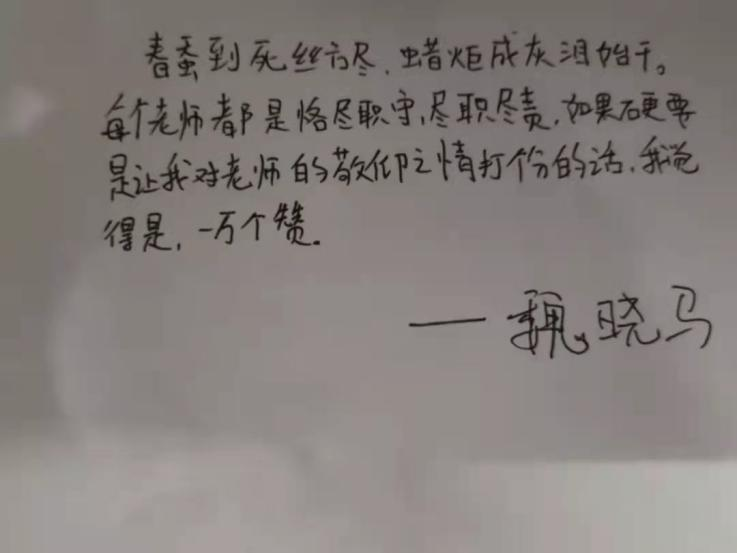 春蚕到死丝方尽，蜡炬成灰泪始干。
每个老师都是恪尽职守，尽职尽责，如果硬要
是让我对老师的敬仰之情打个份的话，我觉
得是，一万个赞。
——魏晓马